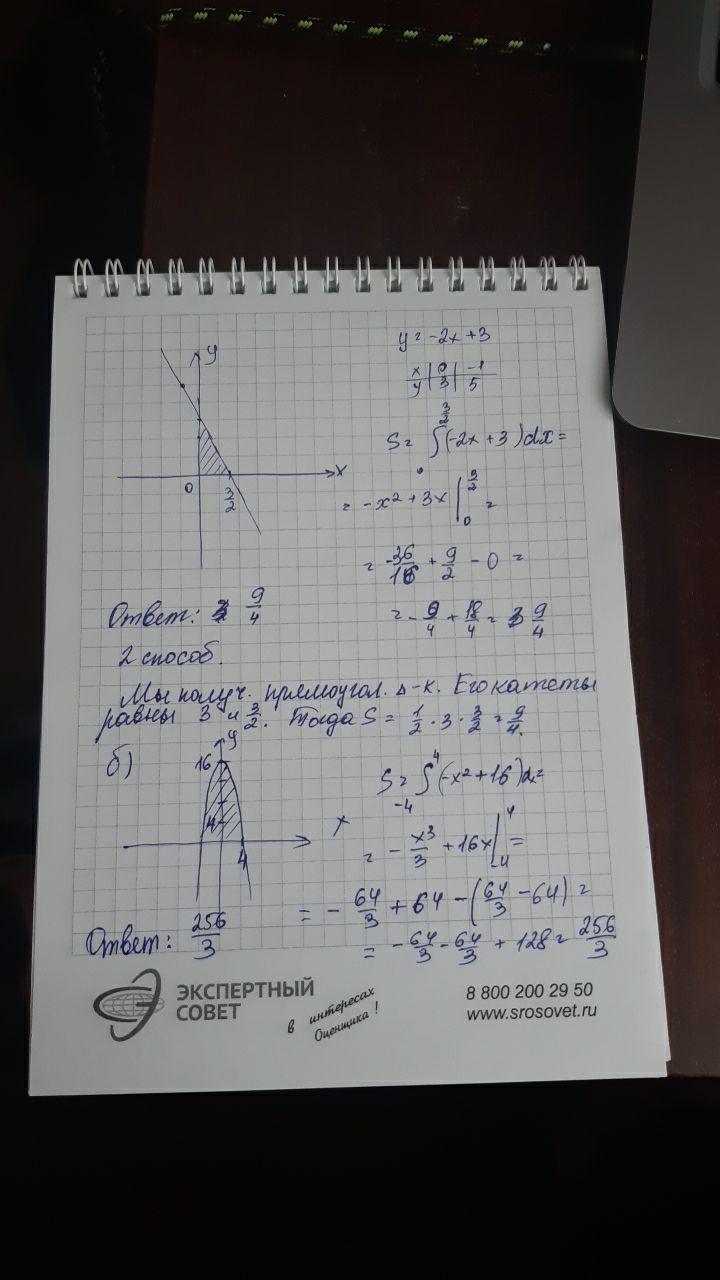 y
x
0
3/2
y = -2x + 3
x | 0 | -1
y | 3 | 5
S = ∫₀^(3/2) (-2x + 3) dx =
= -x² + 3x |₀^(3/2) =
= -36/16 + 9/2 - 0 =
= -9/4 + 18/4 = 9/4
Ответ: 9/4
2 способ.
Мы получ. прямоугол. Δ-к. Его катеты
равны 3 и 3/2. Тогда S = 1/2 · 3 · 3/2 = 9/4.
б)
y
16
4
4
x
S = ∫₋₄^4 (-x² + 16) dx =
= -x³/3 + 16x |₋₄^4 =
= -64/3 + 64 - (64/3 - 64) =
= -64/3 - 64/3 + 128 = 256/3
Ответ: 256/3
ЭКСПЕРТНЫЙ
СОВЕТ
в интересах
Оценщика !
8 800 200 29 50
www.srosovet.ru